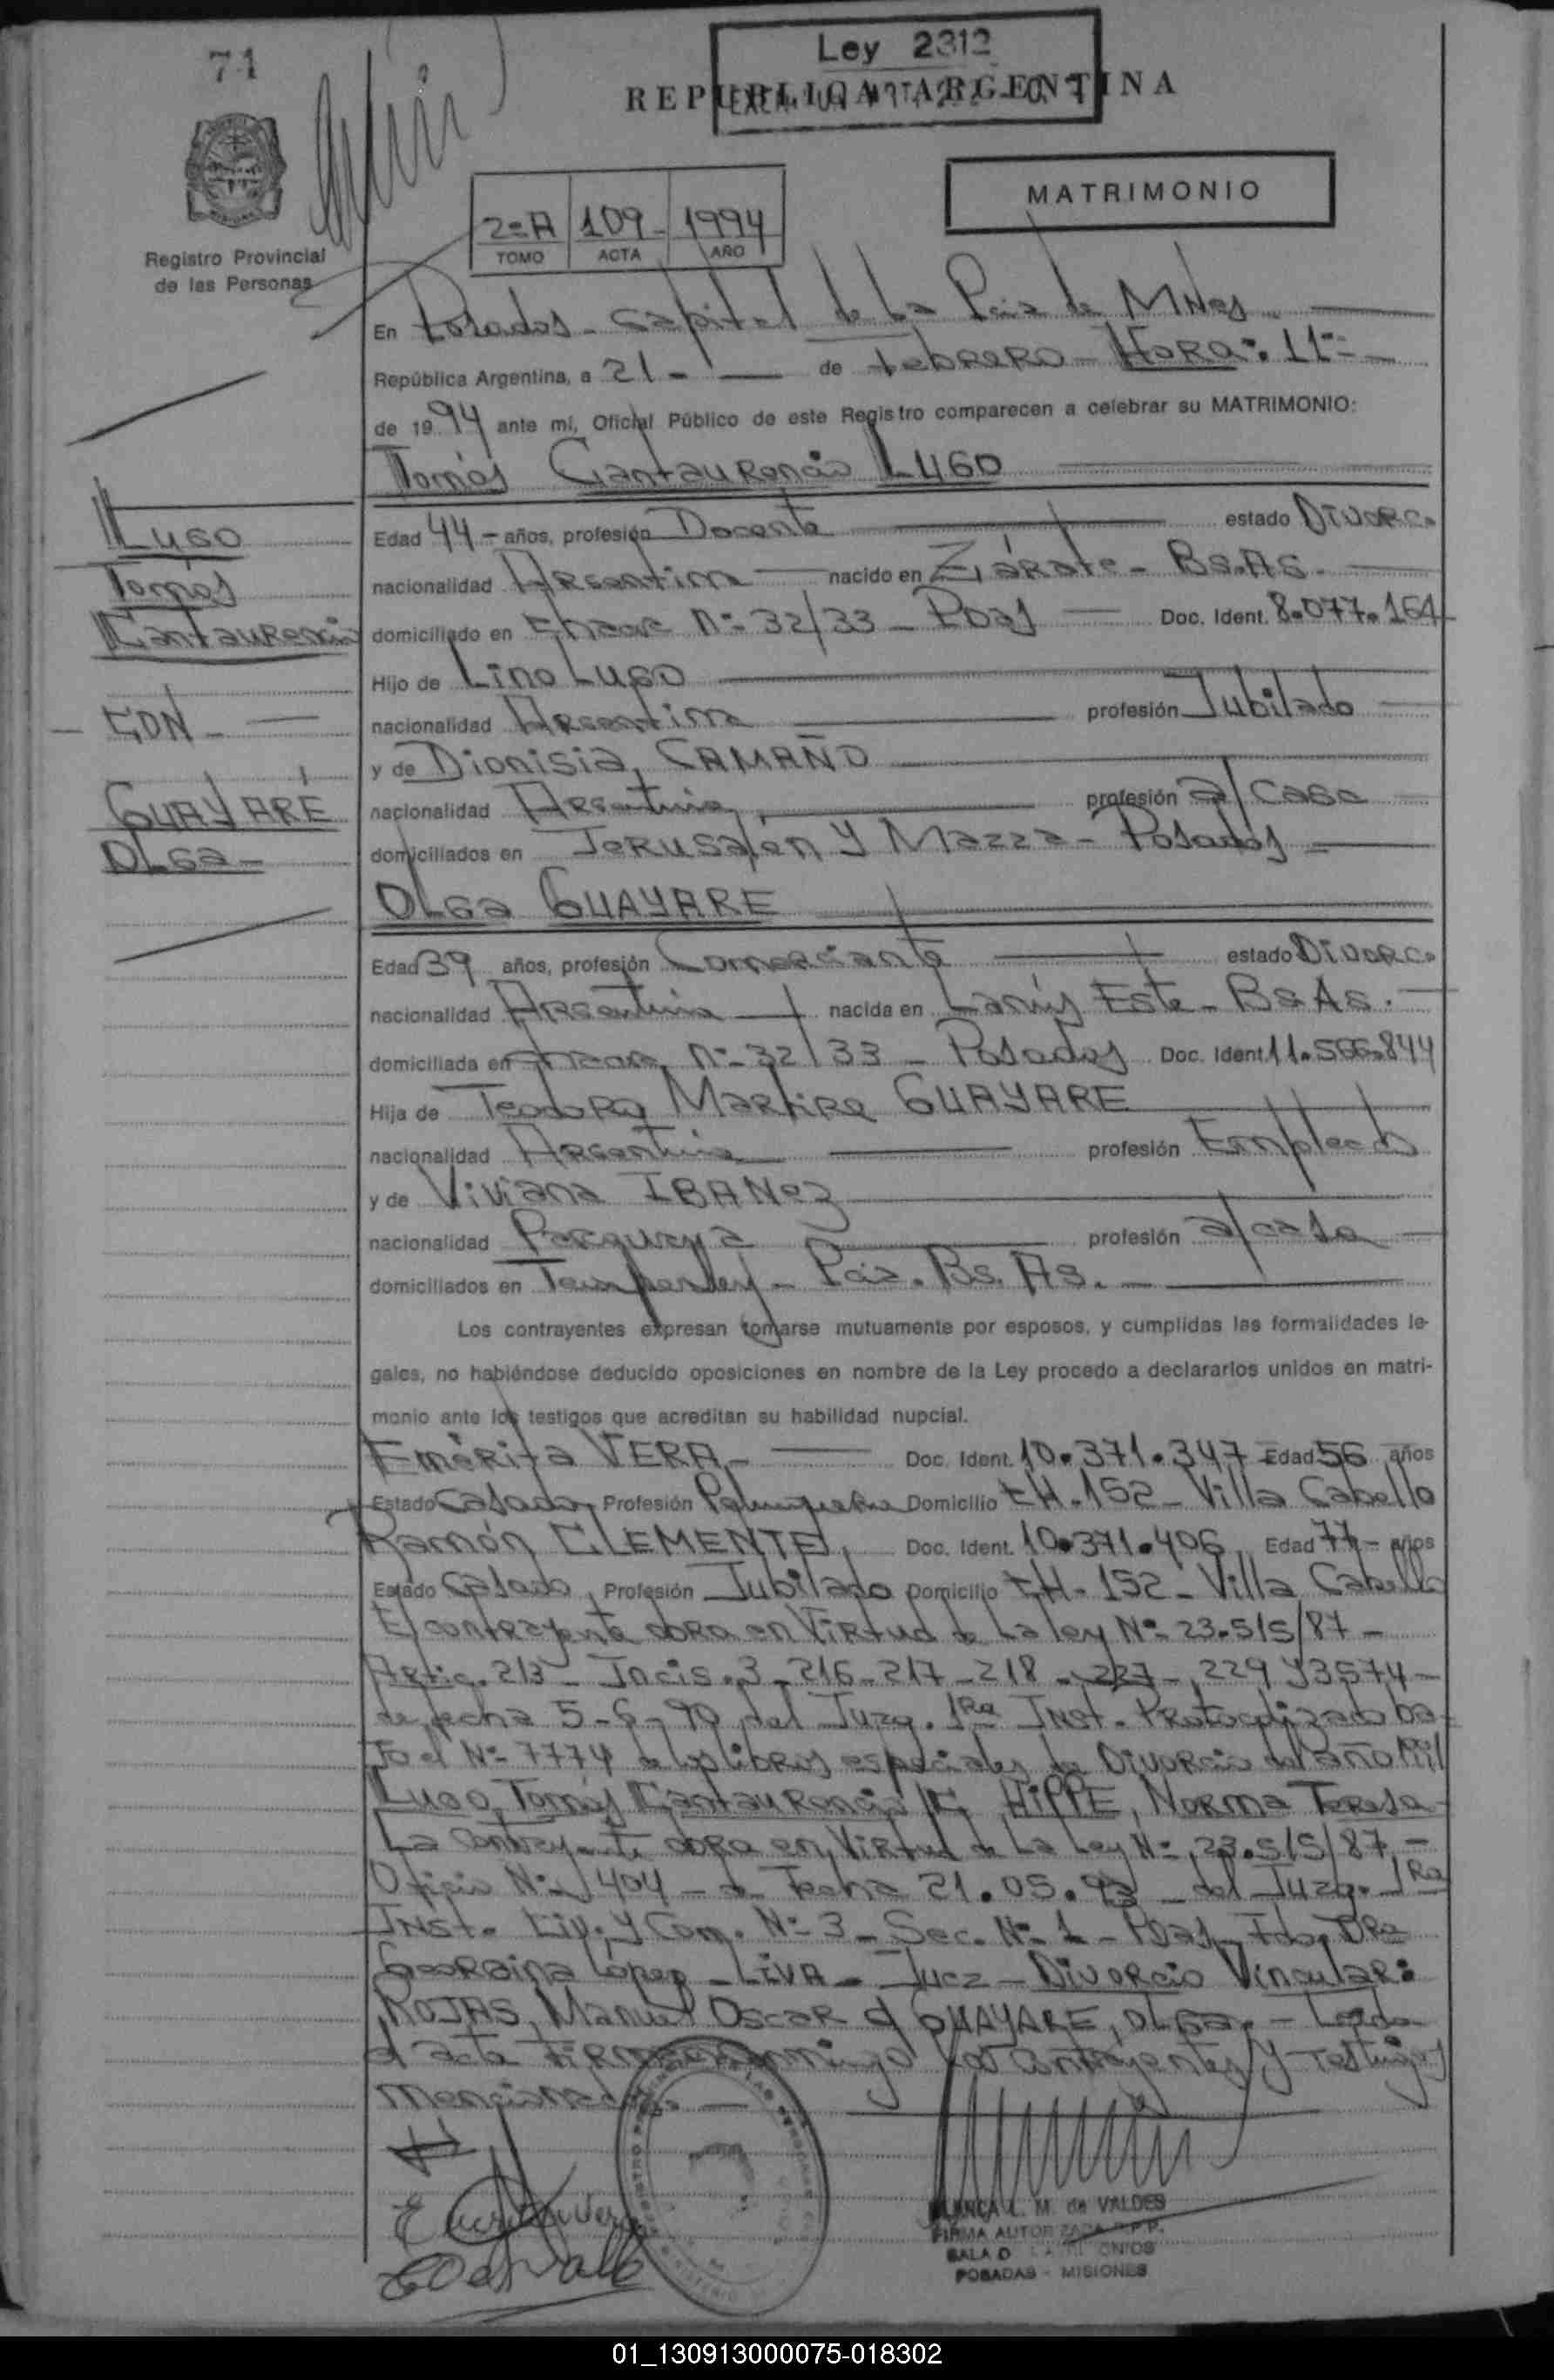 71
Ley 2312
REPUBLICA ARGENTINA
MATRIMONIO
Registro Provincial
de las Personas
2ºA 109 1994
TOMO ACTA AÑO
En Posadas - Capital de La Pcia de Mnes
República Argentina, a 21 - de Febrero - HORA: 11
de 1994 ante mí, Oficial Público de este Registro comparecen a celebrar su MATRIMONIO:
Tomás Cantaurencio LUGO
LUGO
Tomás
Cantaurencio
CON
GUAYARÉ
OLGA -
Edad 44 - años, profesión Docente estado DIVORC.
nacionalidad Argentina nacido en Zárate - Bs.As.
domiciliado en Nº 32/33 - Pdas Doc. Ident. 8.077.164
Hijo de Lino LUGO
nacionalidad Argentina profesión Jubilado
y de Dionisia, CAMAÑO
nacionalidad Argentina profesión a/casa
domiciliados en Jerusalén y Mazza - Posadas
OLGA GUAYARE
Edad 39 años, profesión Comerciante estado DIVORC.
nacionalidad Argentina nacida en Lanús Este - Bs As.
domiciliada en Nº 32/33 - Posadas Doc. Ident. 11.566.844
Hija de Teodoro Martires GUAYARE
nacionalidad Argentina profesión Empleado
y de Viviana IBAÑEZ
nacionalidad Paraguaya profesión a/casa
domiciliados en Temperley - Pcia. Bs. As.
Los contrayentes expresan tomarse mutuamente por esposos, y cumplidas las formalidades le-
gales, no habiéndose deducido oposiciones en nombre de la Ley procedo a declararlos unidos en matri-
monio ante los testigos que acreditan su habilidad nupcial.
Emérita VERA - Doc. Ident. 10.371.347 Edad 56 años
Estado Casada, Profesión Peluquera Domicilio CH. 152 - Villa Cabello
Ramón CLEMENTE, Doc. Ident. 10.371.406 Edad 77 - años
Estado Casado, Profesión Jubilado Domicilio CH - 152 - Villa Cabello
El contrayente obra en Virtud de La ley Nº 23.515/87 -
Artic. 213 - Incis. 3 - 216 - 217 - 218 - 227 - 229 y 3574 -
de fecha 5-6-90 del Juzg. 1Ra Inst. Protocolizado ba-
jo el Nº 7774 de los libros especiales de Divorcio del año
LUGO, Tomás Cantaurencio C/ HIPPE, Norma Teresa -
La Contrayente obra en Virtud de La Ley Nº 23.515/87 -
Oficio Nº 404 - de Fecha 21.05.93 - del Juzg. 1Ra
Inst. Civ. y Com. Nº 3 - Sec. Nº 1 - Pdas - Fdo. DRa
Georgina López - LIVA - Juez - Divorcio Vincular:
ROJAS, Manuel Oscar c/ GUAYARE, OLGA. - Leída
el acta firman conmigo los contrayentes y testigos
mencionados. -
BLANCA L. M. de VALDES
FIRMA AUTORIZADA R.P.P.
POSADAS - MISIONES
01_130913000075-018302